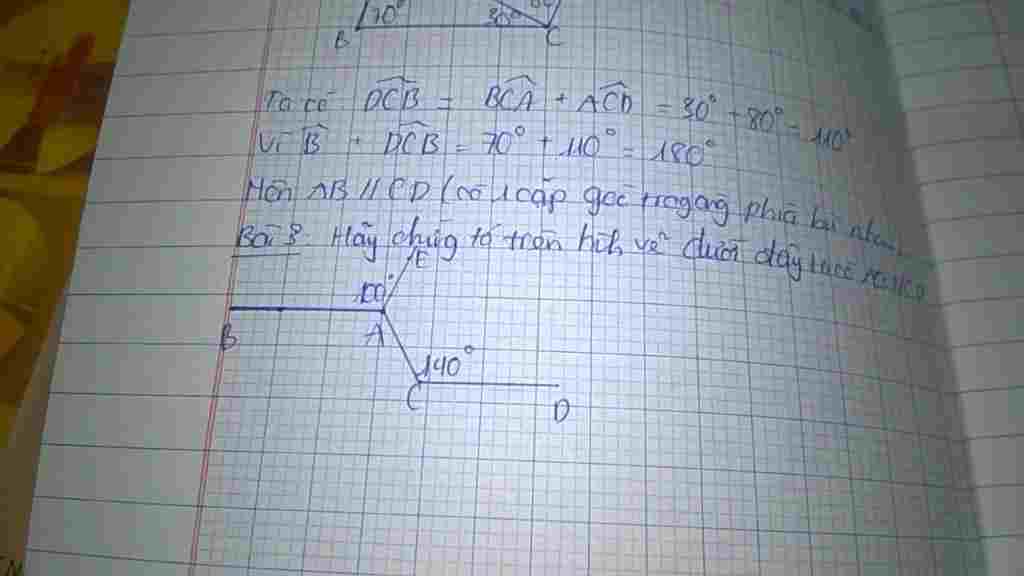 70° 30°
B C
Ta có DCB = BCA + ACD = 30° + 80° = 110°
Vì B + DCB = 70° + 110° = 180°
Nên AB // CD (có 1 cặp góc trong phía
Bài 3: Hãy chứng tỏ trên hình vẽ dưới đây ta có
E
100°
B A
140°
C D